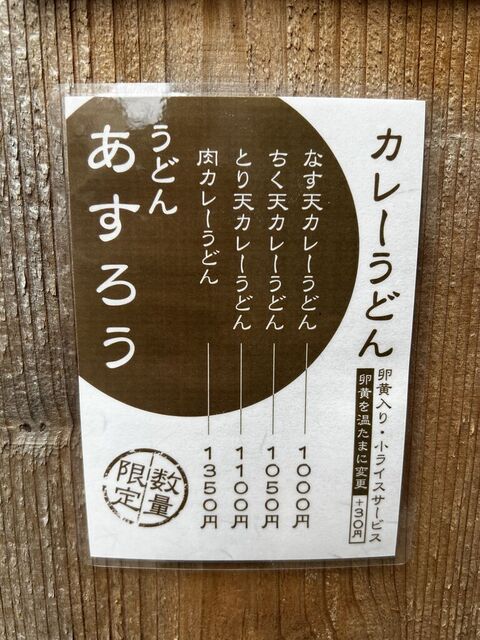 カレーうどん
卵黄入り・小ライスサービス
卵黄を温たまに変更 +30円
なす天カレーうどん 1000円
ちく天カレーうどん 1050円
とり天カレーうどん 1100円
肉カレーうどん 1350円
うどん
あすろう
数量
限定